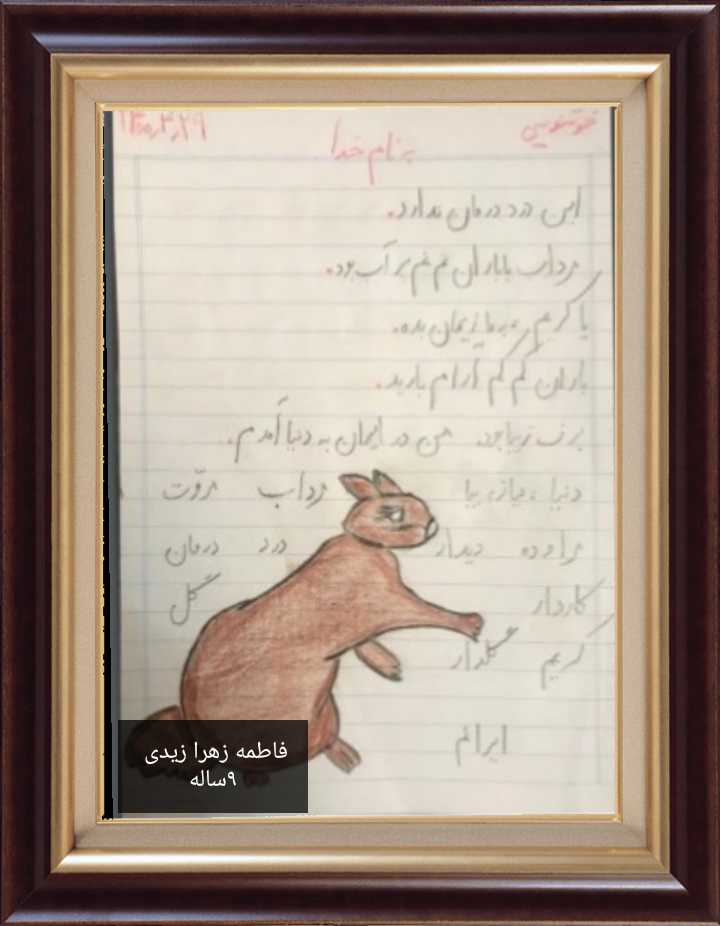 خوشنویسی
به نام خدا
این درد درمان ندارد.
مرداب با باران نم نم پر آب بود.
یا کریم به ما ایمان بده.
باران کم کم آرام بارید.
برف زیبا بود. من در ایران به دنیا آمدم.
دنیا مرداب مروّت
دیدار درد درمان
کاردار گل
کریم گلدار
ایرانم
فاطمه زهرا زیدی
۹ساله